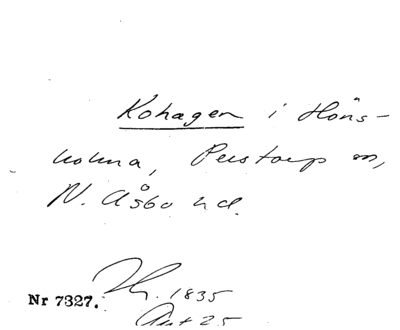 Kohagen i Höns-
holma, Perstorp sn,
N. Åsbo hd.
Nr 7327. 1835
Akt 25